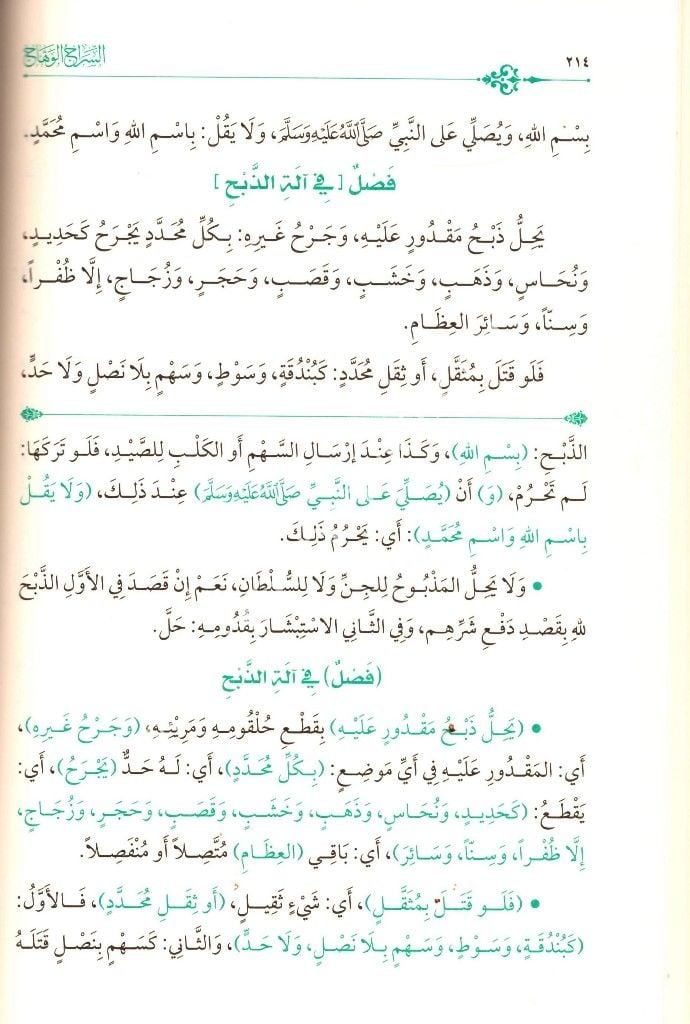 ٢١٤ السراج الوهاج
بِسْمِ اللهِ، وَيُصَلِّي عَلى النَّبِيِّ صَلَّى اللَّهُ عَلَيْهِ وَسَلَّمَ، وَلَا يَقُلْ: بِاسْمِ اللهِ وَاسْمِ مُحَمَّدٍ.
فَصْلٌ [فِي آلَةِ الذَّبْحِ]
يَحِلُّ ذَبْحُ مَقْدُورٍ عَلَيْهِ، وَجَرْحُ غَيرِهِ: بِكُلِّ مُحَدَّدٍ يَجْرَحُ كَحَدِيدٍ،
وَنُحَاسٍ، وَذَهَبٍ، وَخَشَبٍ، وَقَصَبٍ، وَحَجَرٍ، وَزُجَاجٍ، إِلَّا ظُفْراً،
وَسِنّاً، وَسَائِرَ العِظَامِ.
فَلَو قَتَلَ بِمُثَقَّلٍ، أَو ثِقَلِ مُحَدَّدٍ: كَبُنْدُقَةٍ، وَسَوْطٍ، وَسَهْمٍ بِلَا نَصْلٍ وَلَا حَدٍّ،
الذَّبْحِ: (بِسْمِ اللهِ)، وَكَذَا عِنْدَ إِرْسَالِ السَّهْمِ أَو الكَلْبِ لِلصَّيْدِ، فَلَو تَرَكَهَا:
لَم تَحْرُمْ، (وَ) أَنْ (يُصَلِّيَ عَلى النَّبِيِّ صَلَّى اللَّهُ عَلَيْهِ وَسَلَّمَ) عِنْدَ ذَلِكَ، (وَلَا يَقُلْ
بِاسْمِ اللهِ وَاسْمِ مُحَمَّدٍ): أَي: يَحْرُمُ ذَلِكَ.
• وَلَا يَحِلُّ المَذْبُوحُ لِلجِنِّ وَلَا لِلسُّلْطَانِ، نَعَمْ إِنْ قَصَدَ فِي الأَوَّلِ الذَّبْحَ
للهِ بِقَصْدِ دَفْعِ شَرِّهِم، وَفِي الثَّانِي الاسْتِبْشَارَ بِقُدُومِهِ: حَلَّ.
(فَصْلٌ) فِي آلَةِ الذَّبْحِ
• (يَحِلُّ ذَبْحُ مَقْدُورٍ عَلَيْهِ) بِقَطْعِ حُلْقُومِهِ وَمَرِيْئِهِ، (وَجَرْحُ غَيرِهِ)،
أَي: المَقْدُورِ عَلَيْهِ فِي أَيِّ مَوضِعٍ: (بِكُلِّ مُحَدَّدٍ)، أَي: لَهُ حَدٌّ (يَجْرَحُ)، أَي:
يَقْطَعُ: (كَحَدِيدٍ، وَنُحَاسٍ، وَذَهَبٍ، وَخَشَبٍ، وَقَصَبٍ، وَحَجَرٍ، وَزُجَاجٍ،
إِلَّا ظُفْراً، وَسِنّاً، وَسَائِرَ)، أَي: بَاقِي (العِظَامِ) مُتَّصِلاً أَو مُنْفَصِلاً.
• (فَلَو قَتَلَ بِمُثَقَّلٍ)، أَي: شَيْءٍ ثَقِيلٍ، (أَو ثِقَلِ مُحَدَّدٍ)، فَالأَوَّلُ:
(كَبُنْدُقَةٍ، وَسَوْطٍ، وَسَهْمٍ بِلَا نَصْلٍ، وَلَا حَدٍّ)، وَالثَّانِي: كَسَهْمٍ بِنَصْلٍ قَتَلَهُ